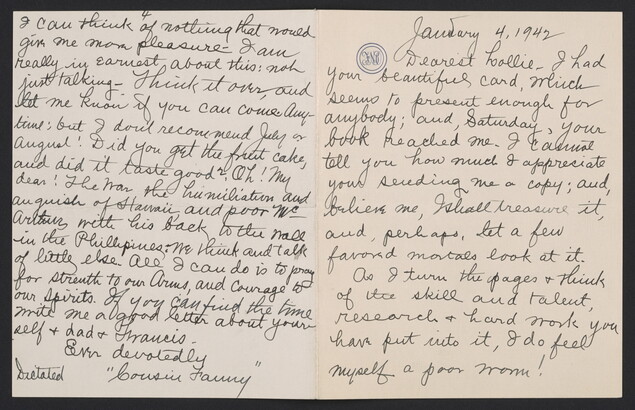 January 4, 1942
Dearest Lollie - I had
your beautiful card, which
seems to present enough for
anybody; and, Saturday, your
book reached me. I cannot
tell you how much I appreciate
your sending me a copy; and,
believe me, I shall treasure it,
and, perhaps, let a few
favored mortals look at it.
As I turn the pages & think
of the skill and talent,
research & hard work you
have put into it, I do feel
myself a poor worm!
I can think of nothing that would
give me more pleasure - I am
really in earnest about this: not
just talking - Think it over, and
let me know if you can come any-
time; but I don't recommend July or
August! Did you get the fruit cake,
and did it taste good? Oh! My
dear! The War, the humiliation and
anguish of Hawaii - and poor Mc
Arthur with his back to the wall
in the Phillipines. We think and talk
of little else. All I can do is to pray
for strenth to our Arms, and courage to
our Spirits. If you can find the time
write me a good letter about your-
self & dad & Francis -
Ever devotedly
Dictated "Cousin Fanny"